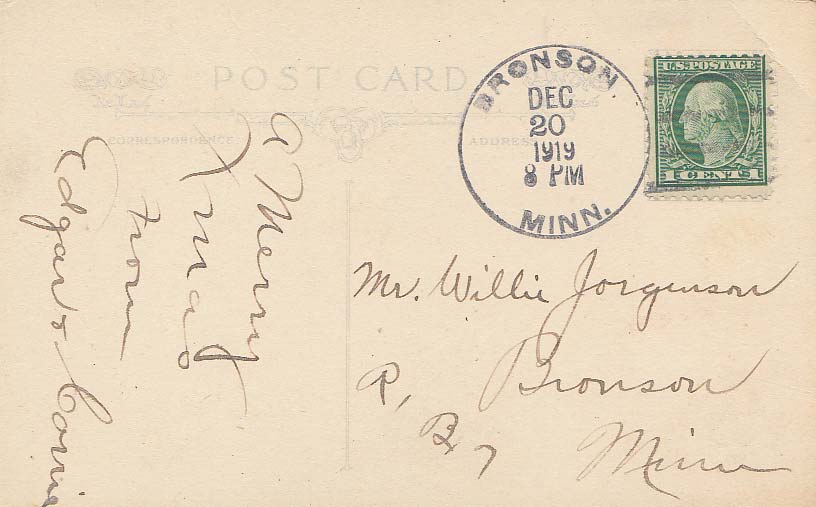 POST CARD
CORRESPONDENCE
ADDRESS
BRONSON
DEC
20
1919
8 PM
MINN.
U.S. POSTAGE
1 CENT 1
A Merry
Xmas
from
Edgar &
Mr. Willie Jorgenson
R, Bronson
B 7 Minn